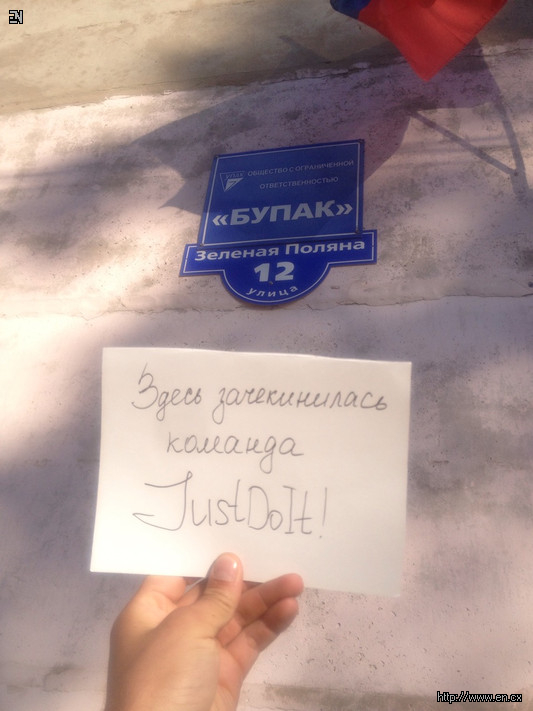 EN
ОБЩЕСТВО С ОГРАНИЧЕННОЙ
ОТВЕТСТВЕННОСТЬЮ
«БУПАК»
Зеленая Поляна
12
улица
Здесь зачекинилась
команда
JustDoIt!
http://www.en.cx